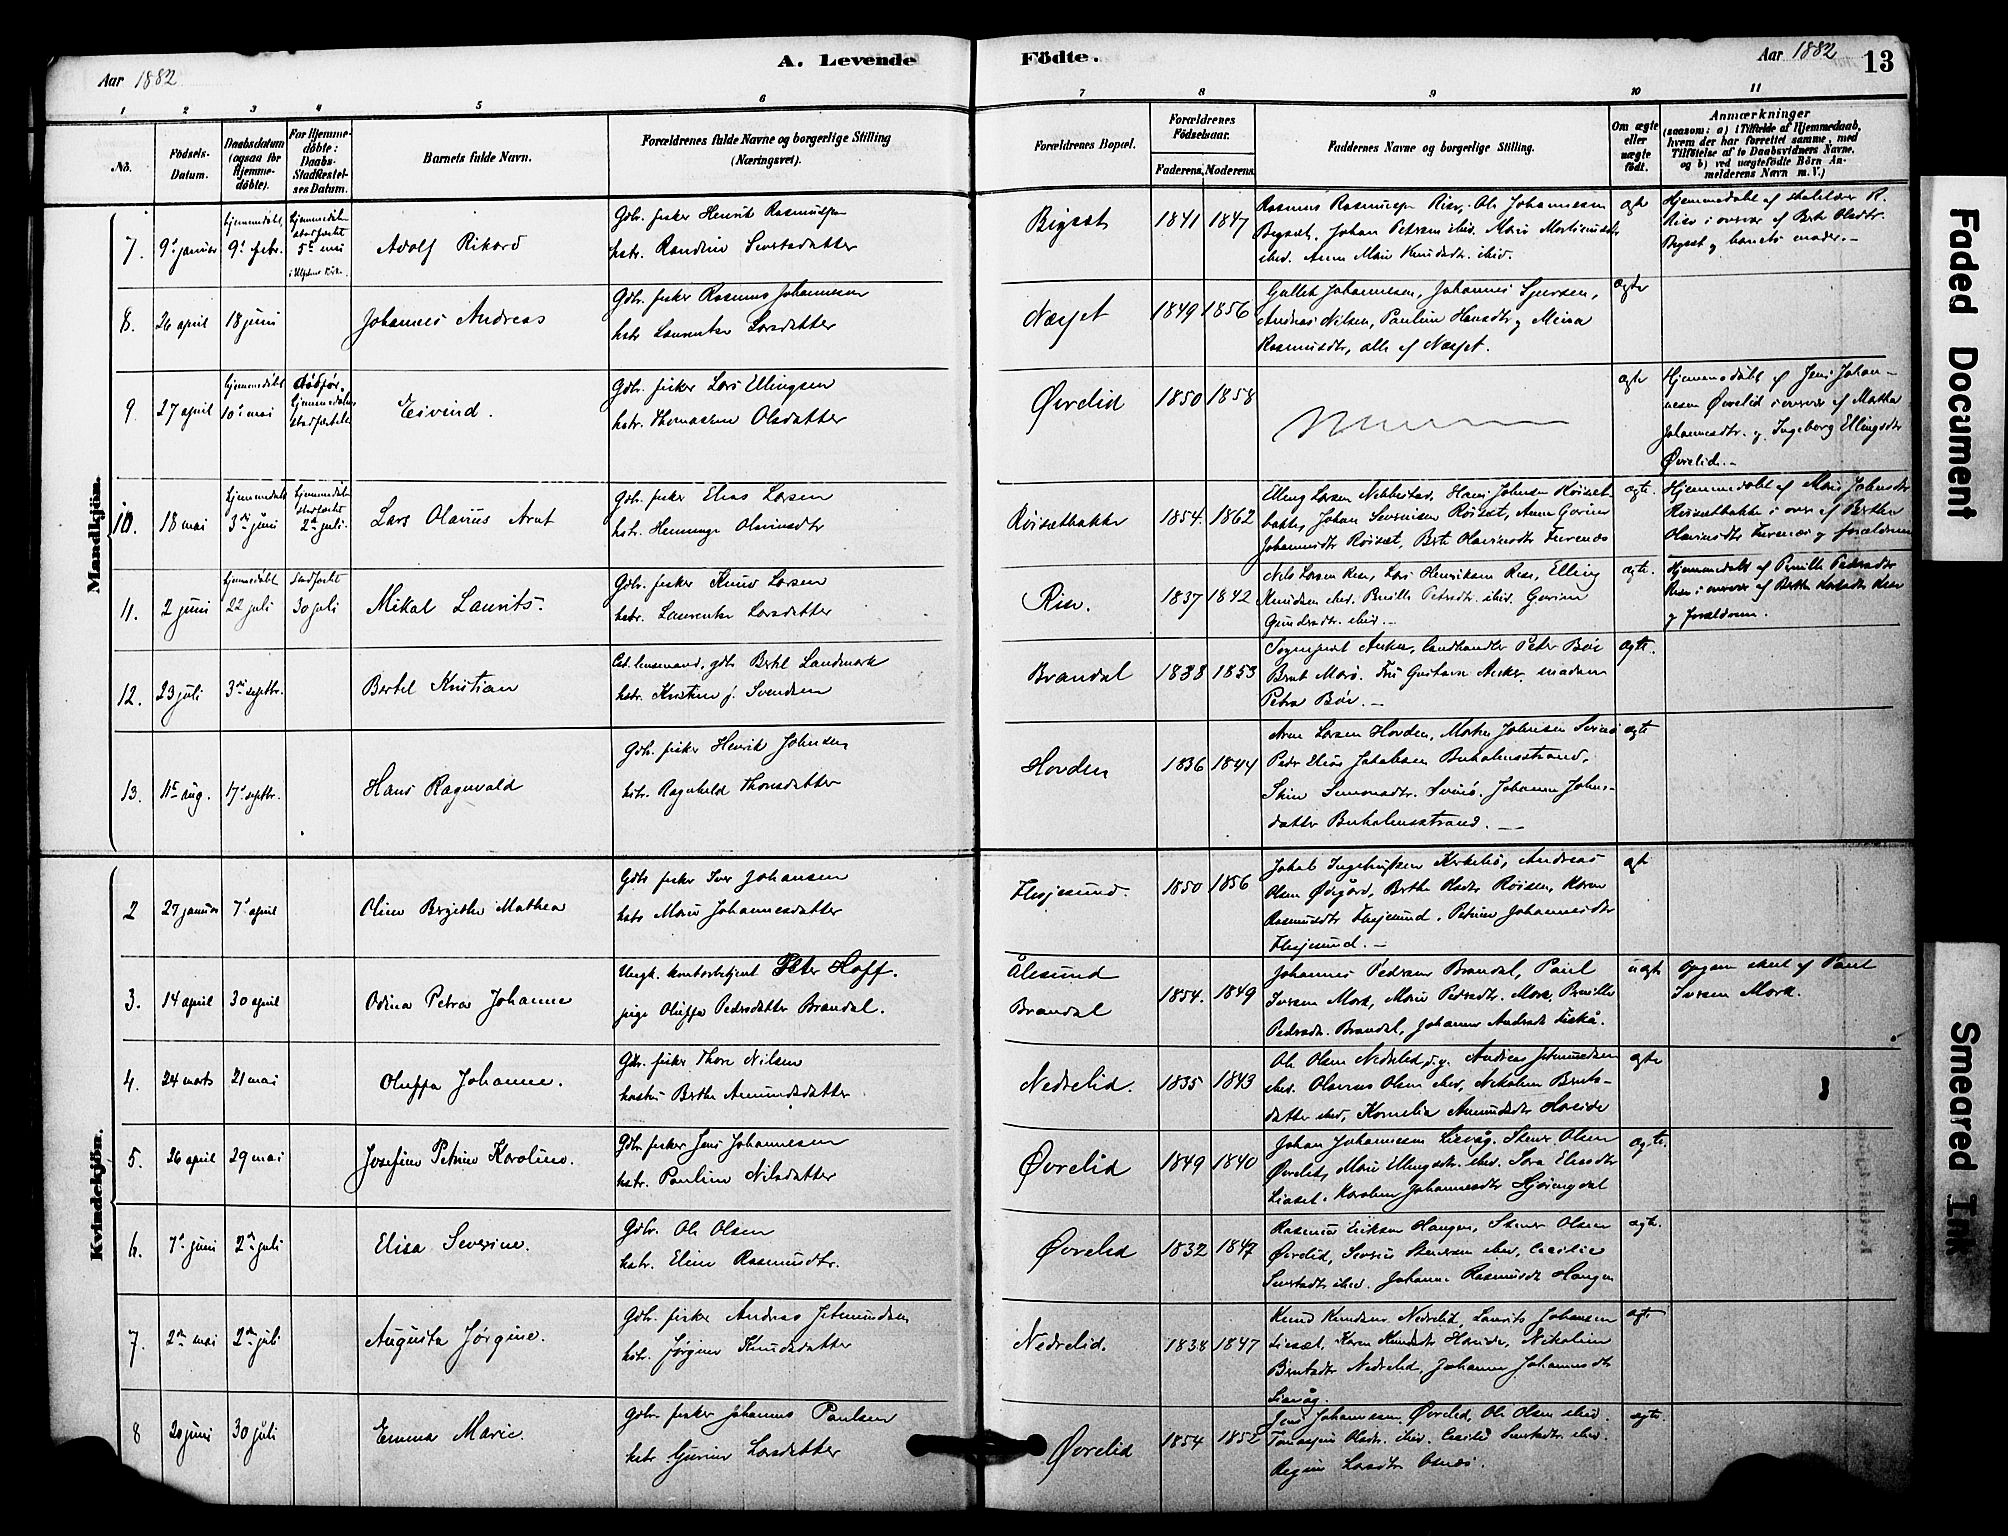 Aar 1882
A. Levende Födte.
Aar 1882
13
1 2 3 4 5 6 7 8 9 10 11
No.
Födsels-Datum.
Daabsdatum (ogsaa för Hjemme-döbte).
For Hjemme-döbte: Daabs-Stadfæstel-ses Datum.
Barnets fulde Navn.
Forældrenes fulde Navne og borgerlige Stilling (Næringsvei).
Forældrenes Bopæl.
Forældrenes Födselsaar.
Faderens. Moderens.
Faddernes Navne og borgerlige Stilling.
Om ægte eller uægte födt.
Anmærkninger
(saasom: a) i Tilfælde af Hjemmedaab, hvem der har forrettet samme, med Tilföielse af to Daabsvidners Navne, og b) ved uægtefödte Börn An-melderens Navn m. V.)
Mandkjön.
7. 9de januar
hjemmedøbt 9de febr.
hjemmedåben stadfæstet 5te mai
Adolf Rikard
Gdbr. fisker Henrik Rasmussen
hstr. Randine Sivertsdatter
Bigset
1841 1847
Rasmus Rasmussen Rise, Ole Johannessen
Bigset, Johan Petersen ibid. Marie Martinusdtr
ibid. Anne Marie Knudsdtr. ibid.
ægte
Hjemmedøbt af skolelærer R.
Rise i overvær af Berte Olsdtr.
Bigset og barnets moder.
8. 26 april 18 juni
Johannes Andreas
Gdbr. fisker Rasmus Johannesen
hstr. Laurentse Larsdatter
Næsset
1849 1856
Gullek Johannesen, Johannes Sjursen,
Andreas Nilsen, Pauline Hansdtr og
Rasmusdtr, alle af Næsset.
ægte
9. 27 april
hjemmedøbt 10de mai
død før hjemmedåben stadfæstedes
Eivind.
Gdbr. fisker Lars Ellingsen
hstr. Thomasine Olsdatter
Øvrelid
1850 1858
ægte
Hjemmedøbt af Jens Johan-
nesen Øvrelid i overvær af Mathea
Johannesdtr. og Ingeborg Ellingsdtr
Øvrelid.
10. 18 mai
hjemmedøbt 3die juni
hjemmedåben stadfæstet 2den juli
Lars Olavus Arnt
Gdbr. fisker Elias Larsen
hstr. Henninge Olavusdtr
Røisetbakke
1854. 1862
Elling Larsen Nebbestad, Hans Johnsen Røiset-
bakke, Johan Severinsen Røiset, Anne Gurine
Johannesdtr Røiset, Berte Olavusdtr Furenæs
ægte.
Hjemmedøbt af Marie Johnsdtr
Røisetbakke i overv. af Berthe
Olavusdtr Furenæs og forældrene
11. 2 juni
hjemmedøbt 22 juli
Stadfæstet 30 juli
Mikal Laurits.
Gdbr. fisker Knud Larsen
hstr. Laurentse Larsdatter
Rise.
1837 1842
Nils Larsen Rise, Lars Henriksen Rise, Elling
Knudsen ibid. Pernille Petersdtr. ibid. Gurine
ibid.
ægte.
Hjemmedøbt af Pernille Pedersdtr
Rise i overvær af Berthe Rise
og forældrene.
12. 23 juli 3die septbr.
Bertel Kristian
Cst. lensmand, gdbr Bertel Landmark
hstr. Kristine f. Svendsen
Brandal
1838 1853
Sognepræst Anker, landhandler Peter Bøe
Brandt Marø. Fru Gustava Anker, madam
Petra Bøe.
ægte.
13. 11te aug. 17de septbr.
Hans Ragnvald
Gdbr. fisker Henrik Johnsen
hstr. Ragnhild Thorsdatter
Hovden
1836 1844
Arne Larsen Hovden, Morten Johnsen Svinø
Peder Elias Jakobsen Buholmsstrand,
Stine Simonsdtr. Svinø. Johanne Johns-
datter Buholmsstrand.
ægte
Kvindekjön.
2 27 januar 7de april
Oline Bergithe Mathea
Gdbr fisker Iver Johansen
hstr Marie Johannesdatter
Flusjesund.
1850 1856
Jakob Ingebrigtsen Kirkebø, Andreas
Olsen Ødegård, Berthe Olsdtr Røisen, Karen
Rasmusdtr Flusjesund, Petrine Johannesdtr
Flusjesund.
ægt
3. 14 april 30 april
Odina Petra Johanne
Ungk. kontorbetjent Peter Hoff.
pige Oluffa Pedersdatter Brandal.
Ålesund
Brandal
1854. 1849
Johannes Pedersen Brandal, Paul
Iversen Mork, Marie Pedersdtr. Mork, Pernille
Pedersdtr. Brandal, Johanne Andrsdtr Fiskå.
uægte
Opgave skeet af Paul
Iversen Mork.
4. 24 marts 21 mai
Oluffa Johanne.
Gdbr. fisker Thore Nilsen
hustru Berthe Amundsdatter
Nedrelid.
1835 1843
Ole Olsen Nedrelid, Andreas Jetmundsen
ibid. Olavus Olsen ibid, Nikoline Bernts-
datter ibid, Kornelia Amundsdtr Hareide
ægte
5. 26 april 29 mai
Josefine Petrine Karoline.
Gdbr. fisker Jens Johannesen
hstr. Pauline Nilsdatter
Øvrelid
1849 1840
Johan Johannesen Liavåg. Stener Olsen
Øvrelid, Marie Ellingsdtr. ibid. Sara Eliasdtr
Liaset. Karoline Johannesdtr Hjørungdal
ægte.
6. 7de juni 2den juli
Elisa Severine.
Gdbr. Ole Olsen
hstr. Eline Rasmusdtr.
Øvrelid
1832 1847
Rasmus Eriksen Haugen, Stener Olsen
Øvrelid, Severin Stenersen ibid, Cecilie
Sivertsdtr ibid. Johanne Rasmusdtr Haugen
ægte.
7. 2den mai 2den juli
Augusta Jørgine.
Gdbr. fisker Andreas Jetmundsen
hstr. Jørgine Knudsdatter
Nedrelid.
1838 1847
Knud Knudsen Nedrelid, Laurits Johansen
Liaset. Karen Knudsdtr Hareide, Nikoline
Berntsdtr Nedrelid, Johanne Johannesdtr
Liavåg.
ægte
8 20 juni 30 juli
Emma Marie.
Gdbr. fisker Johannes Paulsen
hstr. Gurine Larsdatter
Øvrelid
1854 1852
Jens Johannesen Øvrelid, Ole Olsen ibid.
Tomasine Olsdtr. ibid. Cecilie Sivertsdtr ibid.
Regine Larsdtr Osnæs.
ægte.
Faded Document
Smeared Ink